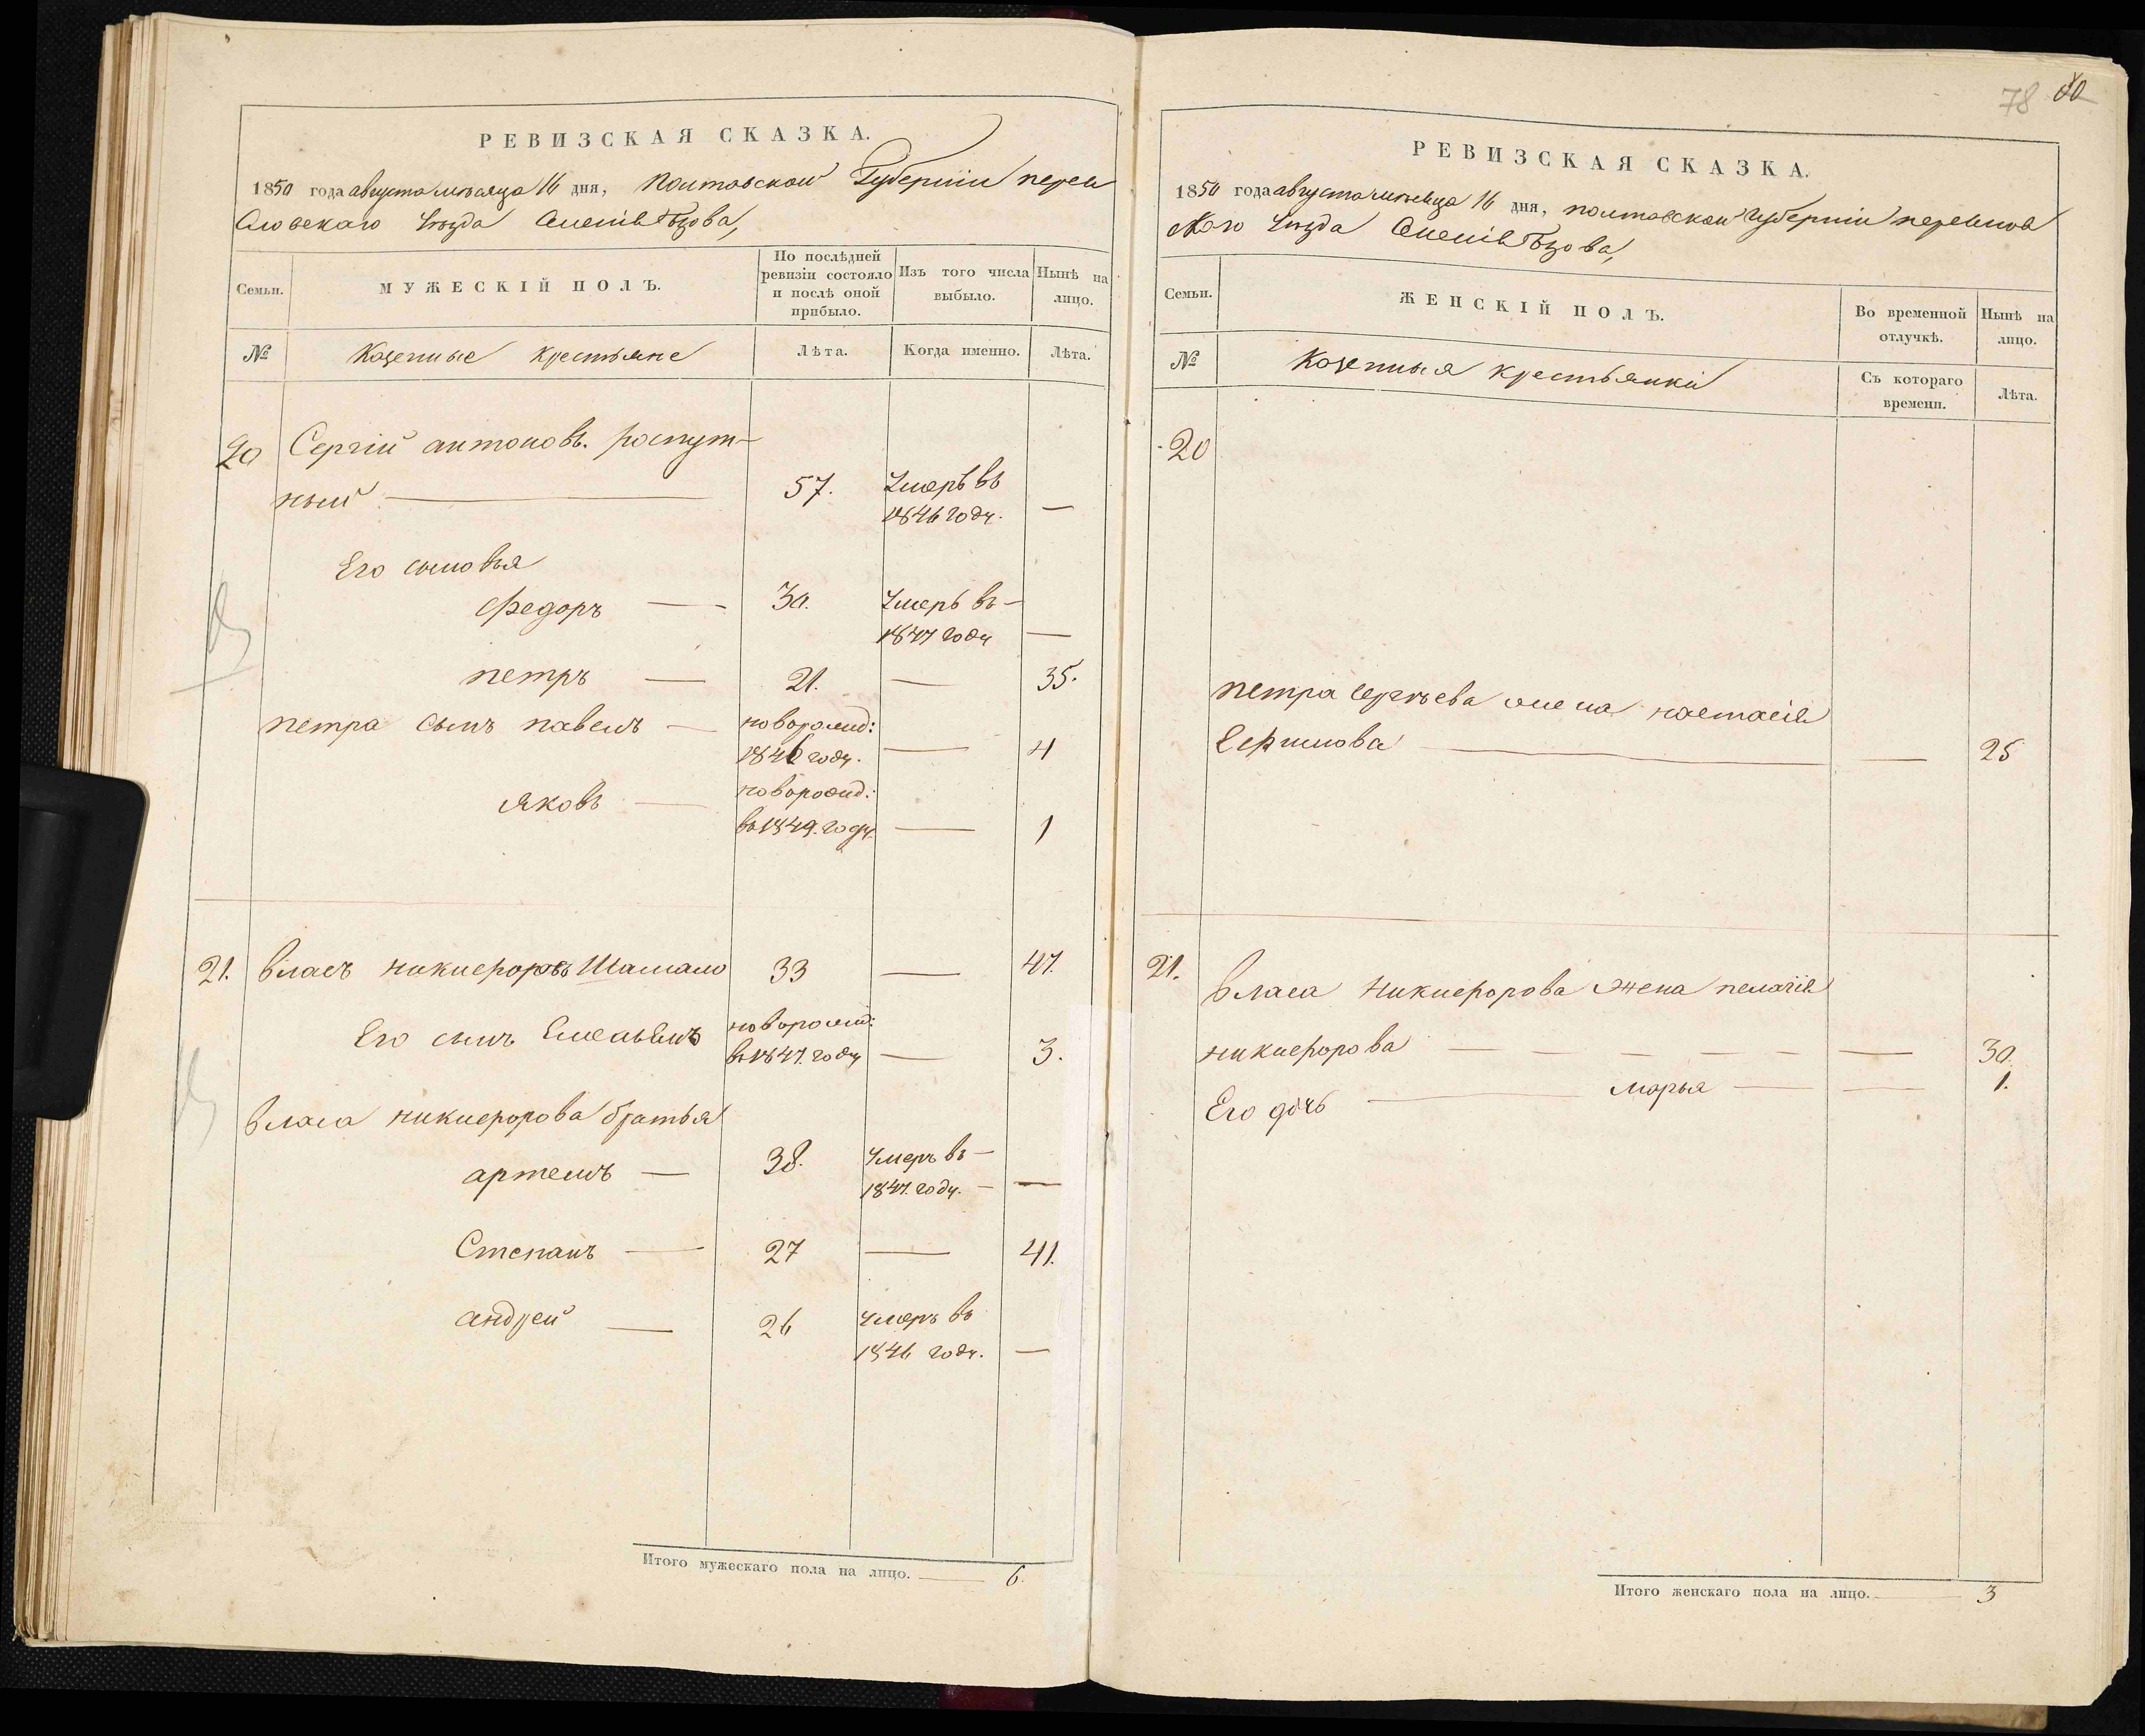 РЕВИЗСКАЯ СКАЗКА.
1850 года августа мѣсяца 16 дня, Полтавской Губерніи перея
словскаго уѣзда
Семьи.
МУЖЕСКІЙ ПОЛЪ.
По послѣдней ревизіи состояло и послѣ оной прибыло.
Изъ того числа выбыло.
Нынѣ на лицо.
№
Казенные крестьяне
Лѣта.
Когда именно.
Лѣта.
20 Сергій антоновъ роспут-
ный — 57. Умеръ въ
1846 году. —
Его сыновья
Федоръ — 30. Умеръ въ —
1847 году —
петръ — 21. — 35.
петра сынъ павелъ — новорожд:
1846 году. — 4
яковъ — новорожд:
въ 1849. году. — 1
21. власъ никифоровъ Шамало 33 — 47.
Его сынъ Емельянъ новорожд:
въ 1847. году — 3.
власа никифорова братья
артемъ — 38. Умеръ въ —
1847. году. — —
Степанъ — 27 — 41.
андрей — 26 умеръ въ
1846 году. —
Итого мужескаго пола на лицо. — 6.
78 80
РЕВИЗСКАЯ СКАЗКА.
1850 года августа мѣсяца 16 дня, полтавской Губерніи переяслов
ского уѣзда
Семьи.
ЖЕНСКІЙ ПОЛЪ.
Во временной отлучкѣ.
Нынѣ на лицо.
№
Казенныя крестьянки
Съ котораго времени.
Лѣта.
20
петра сергѣева жена настасія
Ефимова — — 25
21.
власа никифорова жена пелагія
никифорова — — — — — — 30.
Его дочь — марья — — 1.
Итого женскаго пола на лицо. — 3